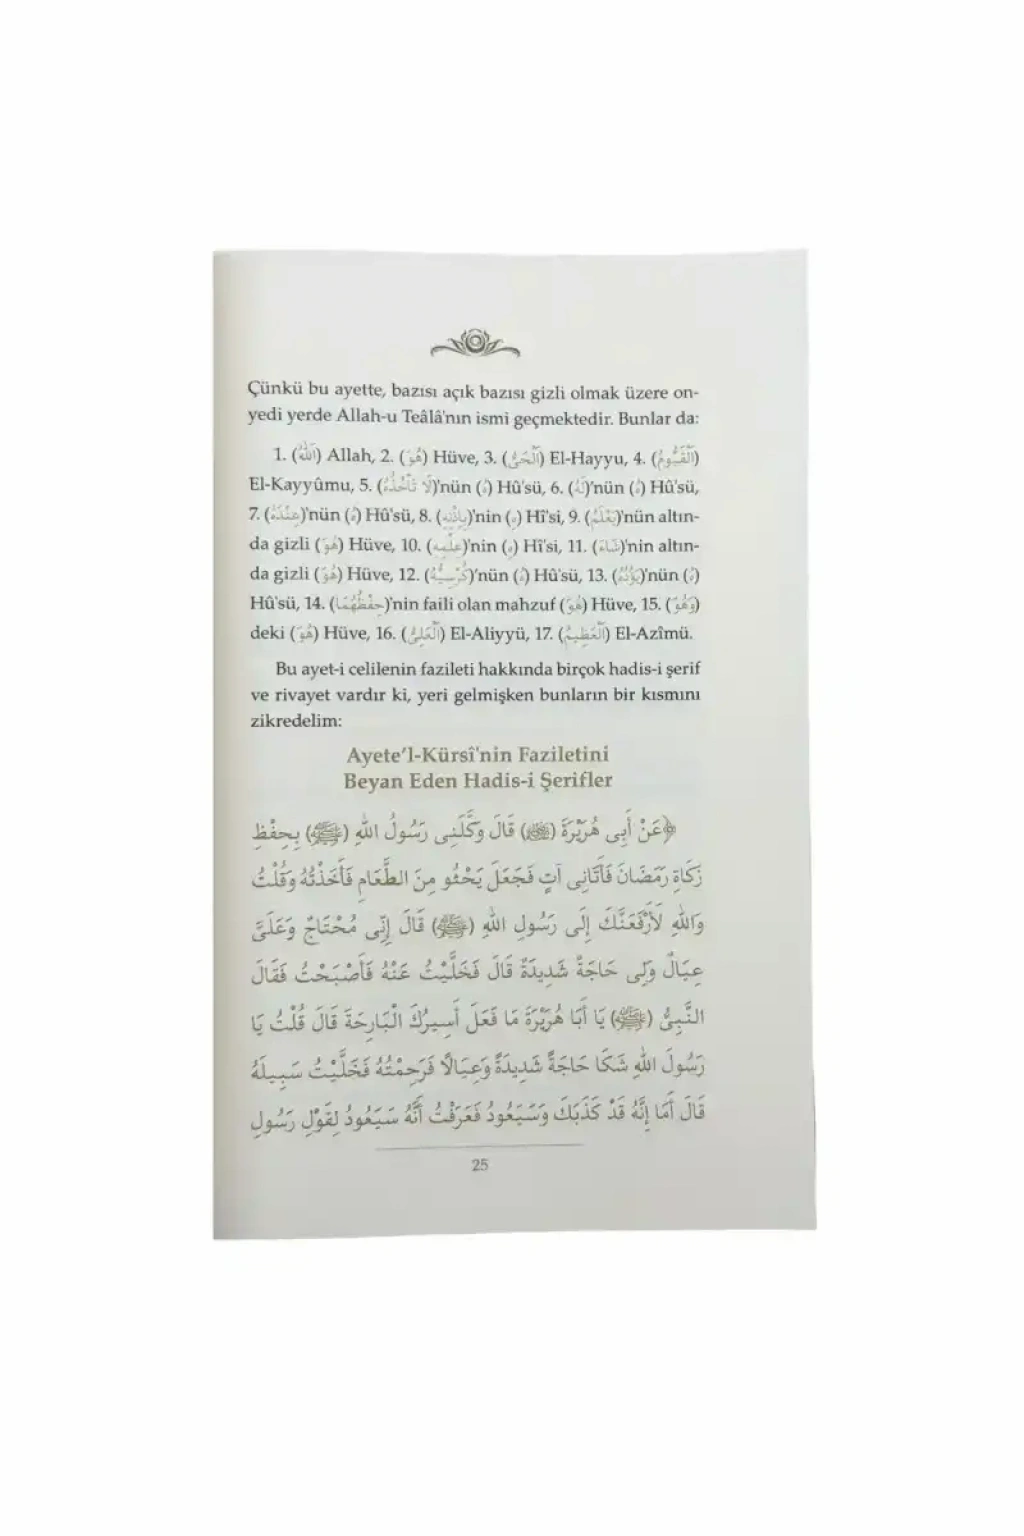 Çünkü bu ayette, bazısı açık bazısı gizli olmak üzere on-
yedi yerde Allah-u Teâlâ'nın ismi geçmektedir. Bunlar da:
1. (اَللّٰهُ) Allah, 2. (هُوَ) Hüve, 3. (اَلْحَيُّ) El-Hayyu, 4. (اَلْقَيُّومُ)
El-Kayyûmu, 5. (لَا تَأْخُذُهُ)'nün (هُ) Hû'sü, 6. (لَهُ)'nün (هُ) Hû'sü,
7. (عِنْدَهُ)'nün (هُ) Hû'sü, 8. (بِاِذْنِهِ)'nin (هِ) Hî'si, 9. (يَعْلَمُ)'nün altın-
da gizli (هُوَ) Hüve, 10. (عِلْمِهِ)'nin (هِ) Hî'si, 11. (شَاءَ)'nin altın-
da gizli (هُوَ) Hüve, 12. (كُرْسِيُّهُ)'nün (هُ) Hû'sü, 13. (يَؤُدُهُ)'nün (هُ)
Hû'sü, 14. (حِفْظُهُمَا)'nin faili olan mahzuf (هُوَ) Hüve, 15. (وَهُوَ)
deki (هُوَ) Hüve, 16. (اَلْعَلِيُّ) El-Aliyyü, 17. (اَلْعَظِيمُ) El-Azîmü.
Bu ayet-i celilenin fazileti hakkında birçok hadis-i şerif
ve rivayet vardır ki, yeri gelmişken bunların bir kısmını
zikredelim:
Ayete'l-Kürsî'nin Faziletini
Beyan Eden Hadis-i Şerifler
﴿عَنْ أَبِى هُرَيْرَةَ (رضي الله عنه) قَالَ وَكَّلَنِى رَسُولُ اللهِ (ﷺ) بِحِفْظِ
زَكَاةِ رَمَضَانَ فَأَتَانِى آتٍ فَجَعَلَ يَحْثُو مِنَ الطَّعَامِ فَأَخَذْتُهُ وَقُلْتُ
وَاللهِ لَأَرْفَعَنَّكَ إِلَى رَسُولِ اللهِ (ﷺ) قَالَ إِنِّى مُحْتَاجٌ وَعَلَىَّ
عِيَالٌ وَلِى حَاجَةٌ شَدِيدَةٌ قَالَ فَخَلَّيْتُ عَنْهُ فَأَصْبَحْتُ فَقَالَ
النَّبِىُّ (ﷺ) يَا أَبَا هُرَيْرَةَ مَا فَعَلَ أَسِيرُكَ الْبَارِحَةَ قَالَ قُلْتُ يَا
رَسُولَ اللهِ شَكَا حَاجَةً شَدِيدَةً وَعِيَالًا فَرَحِمْتُهُ فَخَلَّيْتُ سَبِيلَهُ
قَالَ أَمَا إِنَّهُ قَدْ كَذَبَكَ وَسَيَعُودُ فَعَرَفْتُ أَنَّهُ سَيَعُودُ لِقَوْلِ رَسُولِ
25